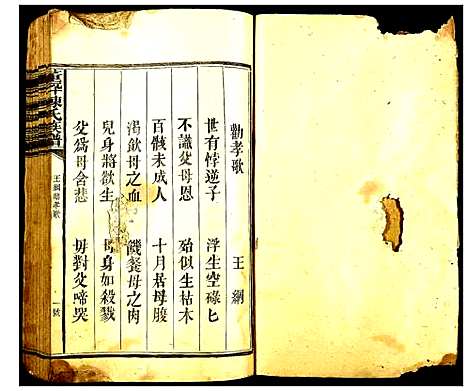 勸孝歌　王綱
世有悖逆子　浮生空碌匕
不識父母恩　殆似生枯木
百骸未成人　十月居母腹
渴飲母之血　饑餐母之肉
兒身將欲生　母身如殺戮
父為母含悲　毋對父啼哭
氏族譜
王綱勸孝歌
一號